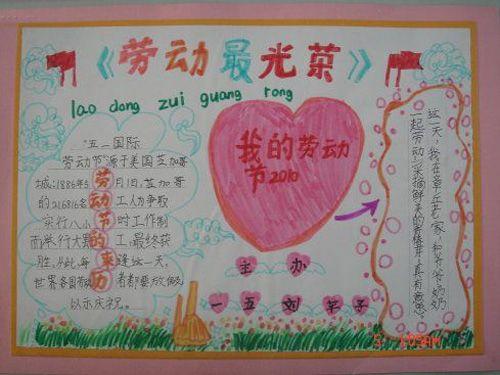 《劳动最光荣》
lao dong zui guang rong
"五一国际
劳动节"源于美国芝加哥
城,1886年5月1日,芝加哥
的216816名工人为争取
实行八小时工作制
而举行大罢工,最终获
胜,从此,每逢这一天,
世界各国劳动者都要放假
以示庆祝。
劳动节的来历
我的劳动
节2010
主办
一五刘
这一天,我在章丘老家,和爷爷奶奶
一起劳动:采摘鲜美的香椿芽,真有意思。